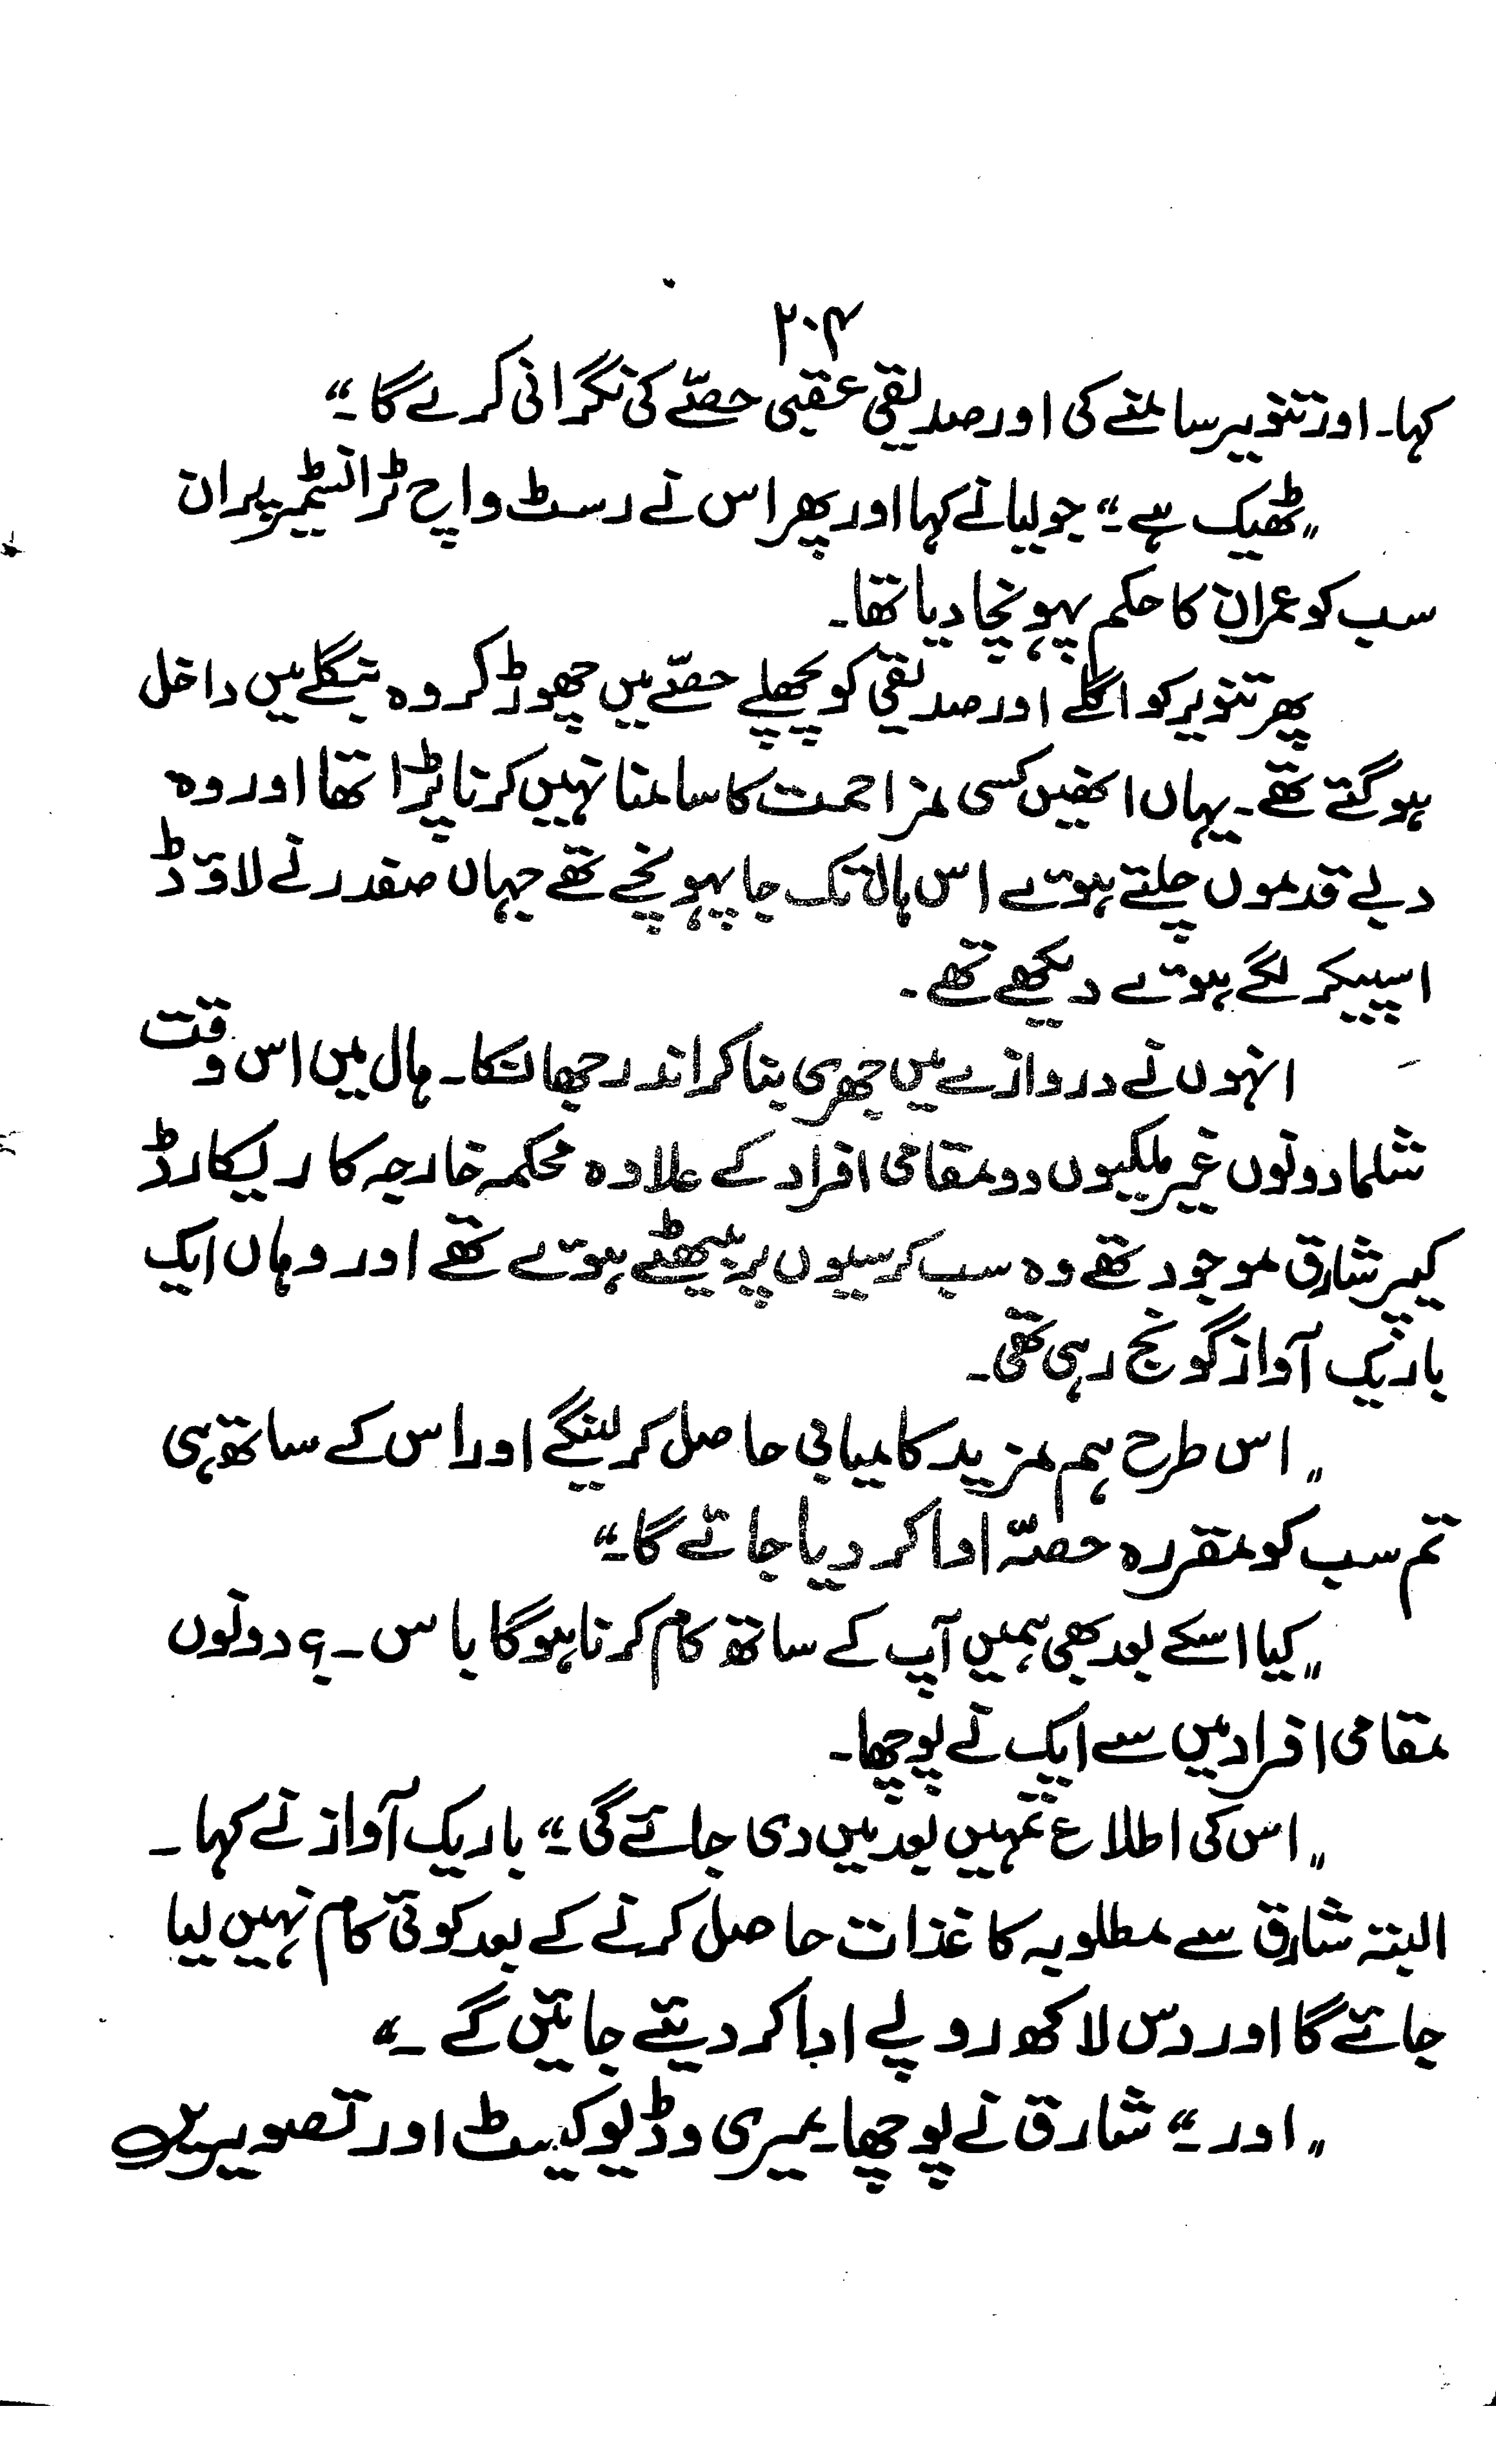 ۲۰۴
کہا۔ اور تنویر سامنے کی اور صدیقی عقبی حصّے کی نگرانی کرے گا۔“
”ٹھیک ہے۔“ جولیا نے کہا اور پھر اس نے رسٹ واچ ٹرانسٹمیر پر ان
سب کو عمران کا حکم پہونچا دیا تھا۔
پھر تنویر کو اگلے اور صدیقی کو پچھلے حصّے میں چھوڑ کر وہ بنگلے میں داخل
ہو گئے تھے۔ یہاں انھیں کسی مزاحمت کا سامنا نہیں کرنا پڑا تھا اور وہ
دبے قدموں چلتے ہوئے اس ہال تک جا پہونچے تھے جہاں صفدر نے لاؤڈ
اسپیکر لگے ہوئے دیکھے تھے۔
انہوں نے دروازے میں جھری بنا کر اندر جھانکا۔ ہال میں اس وقت
شلما دونوں غیر ملکیوں دو مقامی افراد کے علاوہ محکمہ خارجہ کا ریکارڈ
کیپر شارق موجود تھے وہ سب کرسیوں پر بیٹھے ہوئے تھے اور وہاں ایک
باریک آواز گونج رہی تھی۔
”اس طرح ہم مزید کامیابی حاصل کر لینگے اور اس کے ساتھ ہی
تم سب کو مقررہ حصّہ ادا کر دیا جائے گا۔“
”کیا اسکے بعد بھی ہمیں آپ کے ساتھ کام کرنا ہو گا باس۔؟ دونوں
مقامی افراد میں سے ایک نے پوچھا۔
”اس کی اطلاع تمہیں بعد میں دی جائے گی۔“ باریک آواز نے کہا۔
البتہ شارق سے مطلوبہ کاغذات حاصل کرنے کے بعد کوئی کام نہیں لیا
جائے گا اور دس لاکھ روپے ادا کر دیئے جائیں گے۔“
”اور۔“ شارق نے پوچھا۔ میری وڈیو کیسٹ اور تصویریں